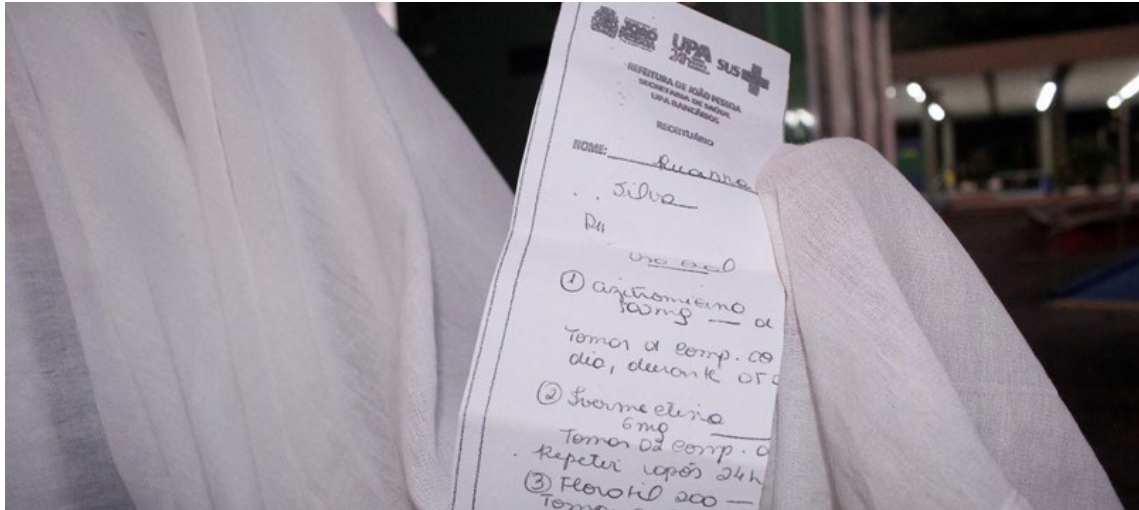 JOÃO PESSOA
UPA 24h SUS
REFEITURA DE JOÃO PESSOA
SECRETARIA DE SAÚDE
UPA BANCÁRIOS
RECEITUÁRIO
NOME: Ruanna
Silva
uso oral
① azitromicina
500mg —
Tomar 01 comp. ao
dia, durante 05
② Ivermectina
6mg
Tomar 02 comp.
Repetir após 24h
③ Floratil 200 —
Tomar